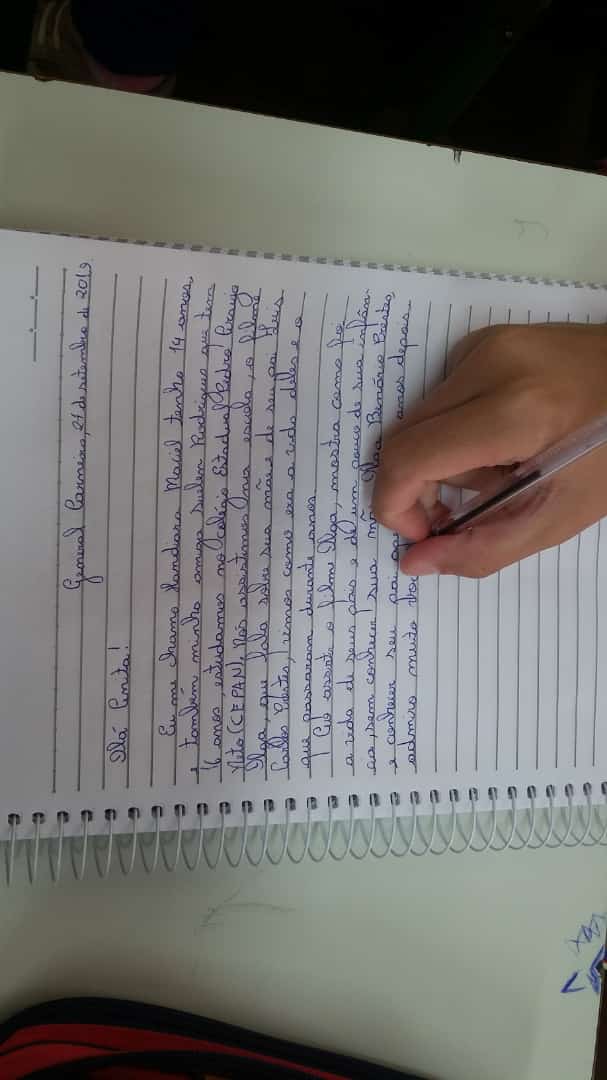 General Carneiro, 21 de setembro de 2019.
Olá Anita!
Eu me chamo Handiara Maciel tenho 14 anos,
e também minha amiga Suelen Rodrigues que tem
16 anos estudamos no Colégio Estadual Pedro Araujo
Neto (CEPAN), Nós assistimos uma escola, o filme
Olga, que fala sobre sua mãe e de seu pai Luis
Carlos Prestes, vimos como era a vida deles e o
que passaram durante anos
Ao assistir o filme Olga, mostra como foi
a vida de seus pais e de um pouco de sua infân-
cia, sem conhecer sua mãe Olga Benário Prestes,
e conhecer seu pai anos depois.
admiro muito